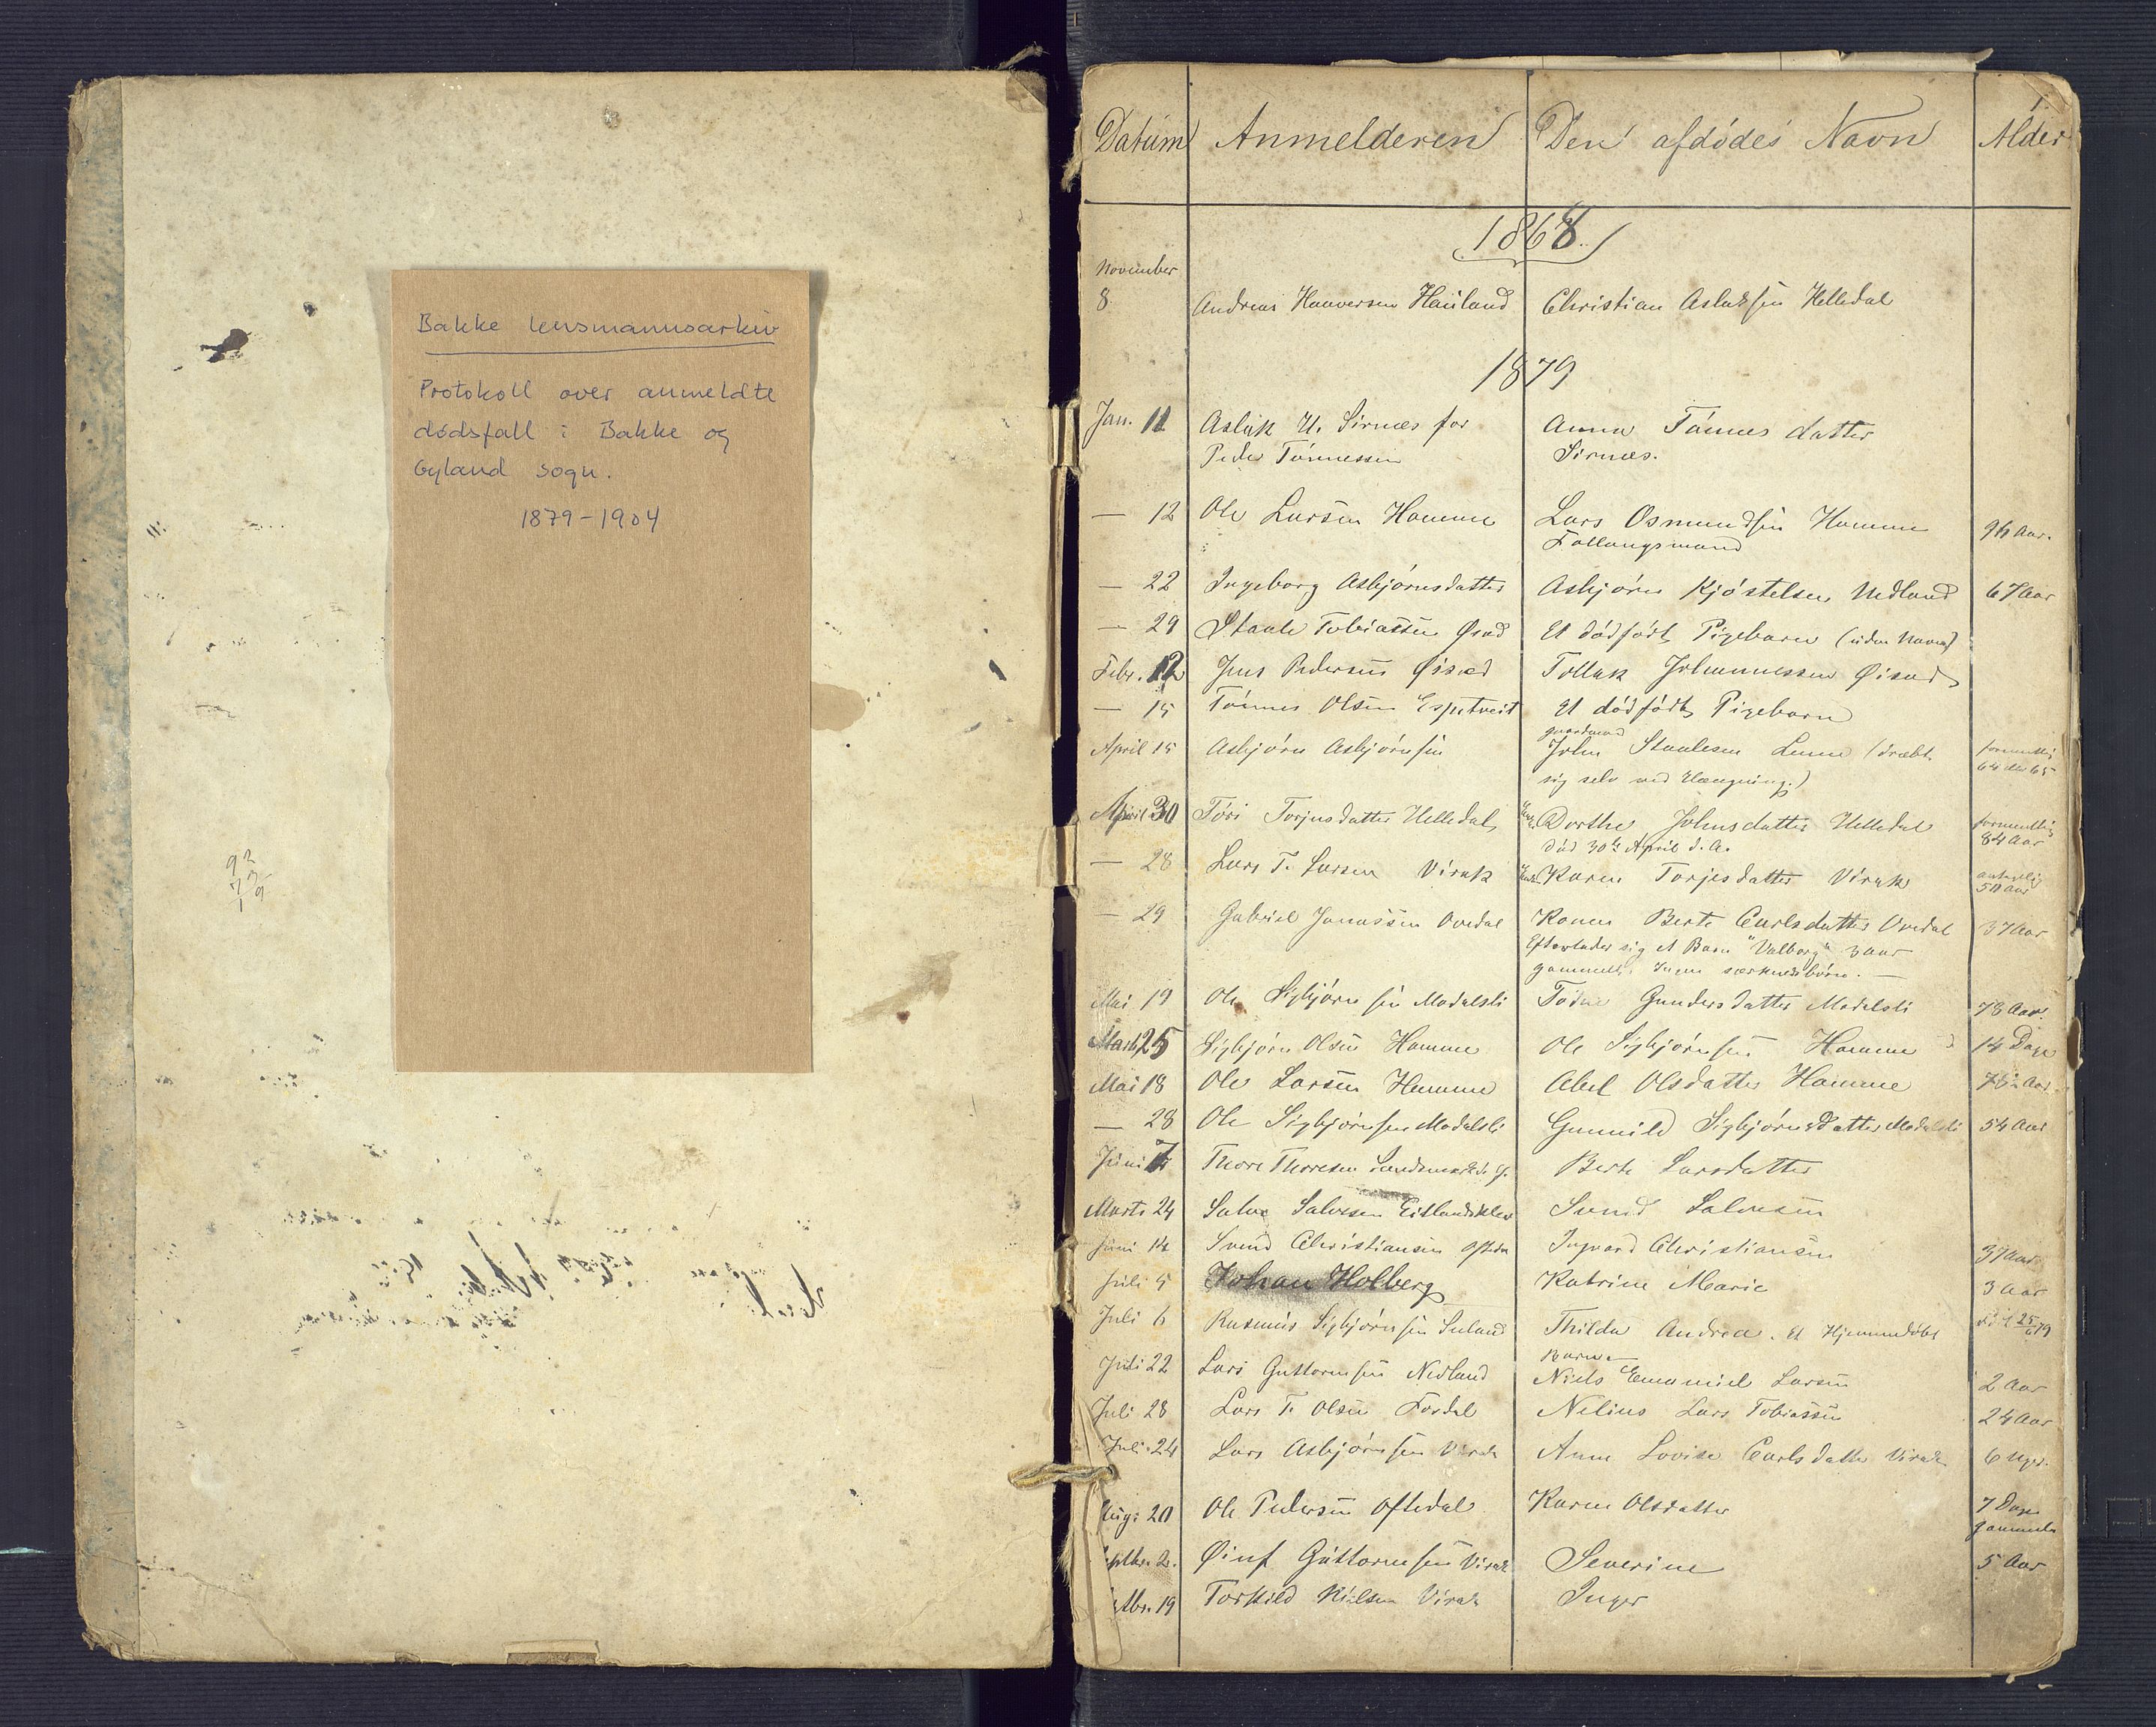 Bakke lensmannsarkiv
Protokoll over anmeldte
dødsfall i Bakke og
Gyland sogn.
1879-1904
1.
Datum Anmelderen Den afdødes Navn Alder
1868.
November
8 Andreas Haaversen Hauland Christian Aslaksen Helledal
1879
Jan. 11 Aslak H. Sirnæs for Anna Tønnes datter
Peder Tønnessen Sirnæs.
— 12 Ole Larsen Hamme Lars Osmundsen Hamme 94 Aar.
— 22 Ingeborg Asbjørnsdatter Asbjørn Kjøstelsen Nedland 67 Aar
— 29 Staale Tobiassen Et dødfødt Pigebarn (uden Navn)
Febr. 12 Jens Pedersen Øisæd Tollak Johannessen Øisæd
— 15 Tønnes Olsen Espetveit Et dødfødt Pigebarn
April 15 Asbjørn Asbjørnsen John Staalesen (dræbt formentlig
sig selv ved Hængning.) 64 65
April 30 Tøri Torjusdatter Helledal Enke Dorthe Johnsdatter Helledal formentlig
død 30te April d. A. 84 Aar
— 28 Lars T. Larsen Virak Enke Karen Torjesdatter Virak antagelig
50 Aar
— 29 Gabriel Jonassen Ovedal Konen Berte Carlsdatter Ovedal 37 Aar
Efterlader sig et Barn "Valborg" 3 aar
gammelt. Ingen særkuldsbørn. —
Mai 19 Ole Sigbjørnsen Modalsli Gundersdatter Modalsli 78 Aar.
Marts 25 Sigbjørn Olsen Hamme Ole Sigbjørnsen Hamme 14 Dage
Mai 18 Ole Larsen Hamme Abel Olsdatter Hamme 75 Aar.
— 28 Ole Sigbjørnsen Modalsli Gunnild Sigbjørnsdatter Modalsli 54 Aar
Juni 7 Thore Thoresen Berte Larsdatter
Marts 24 Salve Salvesen Svend Salvesen
Juni 14 Svend Christiansen Ingvard Christiansen 37 Aar
Juli 5 Johan Holberg Katrine Marie 3 Aar
Juli 6 Rasmus Sigbjørnsen Thilda Andrea. Et Hjemmedøbt 25/6 79
Barn
Juli 22 Lars Guttormsen Nedland Niels Emanuel Larsen 2 Aar
Juli 28 Lars T. Olsen Nilius Lars Tobiassen 24 Aar
Juli 24 Lars Asbjørnsen Virak Anne Lovise Carlsdatter Virak 6 Uger.
Aug. 20 Ole Pedersen Oftedal Karen Olsdatter 7 Dage
gammel
Septbr. 2. Øinf Guttormsen Virak Severine 5 Aar
19 Torkild Nielsen Virak Inger